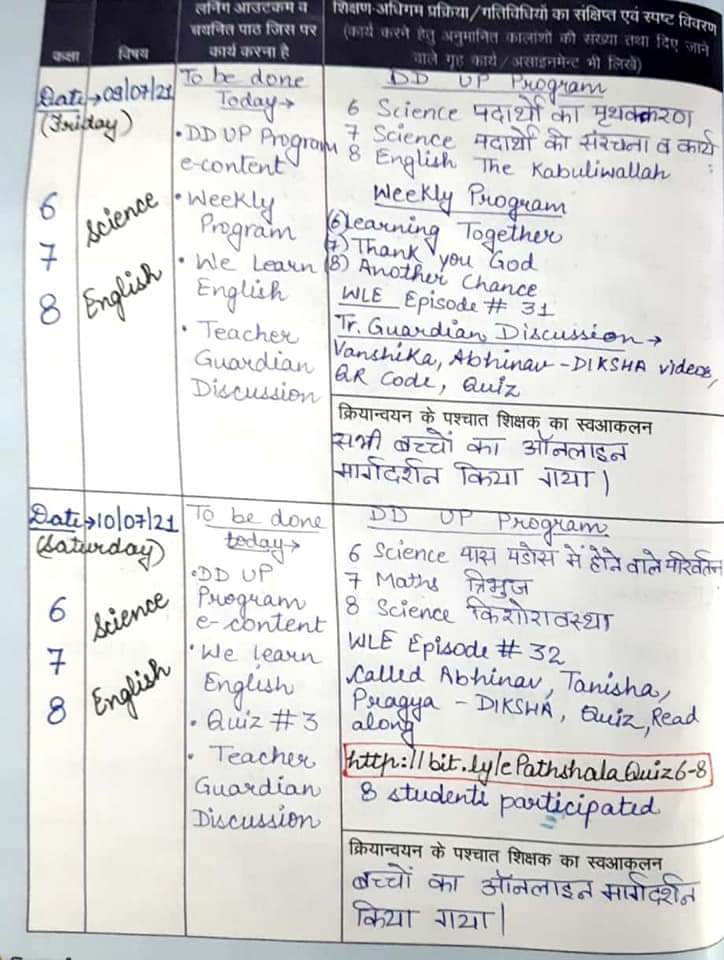 कक्षा
विषय
लर्निंग आउटकम व
चयनित पाठ जिस पर
कार्य करना है
शिक्षण-अधिगम प्रक्रिया/गतिविधियों का संक्षिप्त एवं स्पष्ट विवरण
(कार्य करने हेतु अनुमानित कालांशों की संख्या तथा दिए जाने
वाले गृह कार्य/असाइनमेन्ट भी लिखें)
Date→09/07/21
(Friday)
6
7
8
Science
English
To be done
Today→
• DD UP Program
e-content
• Weekly
Program
• We Learn
English
• Teacher
Guardian
Discussion
DD UP Program
6 Science पदार्थो का पृथक्करण
7 Science पदार्थो की संरचना व कार्य
8 English The Kabuliwallah
Weekly Program
(6) Learning Together
(7) Thank you God
(8) Another Chance
WLE Episode # 31
Tr. Guardian Discussion →
Vanshika, Abhinav - DIKSHA videos,
QR Code, Quiz
क्रियान्वयन के पश्चात शिक्षक का स्वआकलन
सभी बच्चों का ऑनलाइन
मार्गदर्शन किया गया।
Date→10/07/21
(Saturday)
6
7
8
Science
English
To be done
today→
• DD UP
Program
e-content
• We learn
English
• Quiz # 3
• Teacher
Guardian
Discussion
DD UP Program
6 Science पास पडोस में होने वाले परिवर्तन
7 Maths त्रिभुज
8 Science किशोरावस्था
WLE Episode # 32
Called Abhinav, Tanisha,
Pragya - DIKSHA, Quiz, Read
along
http://bit.ly/ePathshalaQuiz6-8
8 students participated
क्रियान्वयन के पश्चात शिक्षक का स्वआकलन
बच्चों का ऑनलाइन मार्गदर्शन
किया गया।